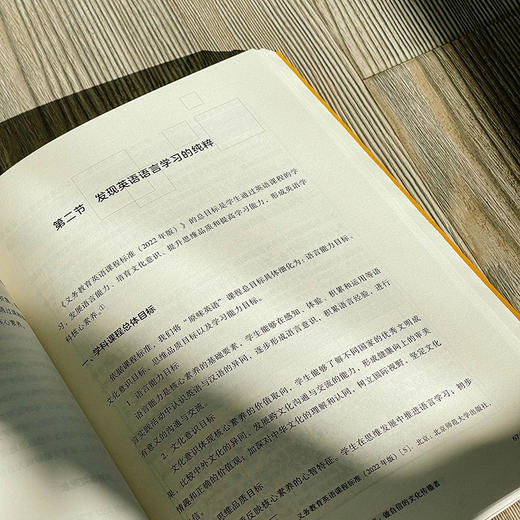 第二节 发现英语语言学习的纯粹
《义务教育英语课程标准（2022年版）》的总目标是学生通过英语课程的学
习，发展语言能力、培育文化意识、提升思维品质和提高学习能力，形成英语学
科核心素养。①
一、学科课程总体目标
依据课程标准，我们将“原味英语”课程总目标具体细化为：语言能力目标、
文化意识目标、思维品质目标以及学习能力目标。
1. 语言能力目标
语言能力是核心素养的基础要素，学生能够在感知、体验、积累和运用等语
言实践活动中认识英语与汉语的异同，逐步形成语言意识，积累语言经验，进行
有意义的沟通与交流。
2. 文化意识目标
文化意识体现核心素养的价值取向，学生能够了解不同国家的优秀文明成
果，比较中外文化的异同，发展跨文化沟通与交流的能力，形成健康向上的审美
情趣和正确的价值观，加深对中华文化的理解和认同，树立国际视野，坚定文化
思维品质目标
反映核心素养的心智特征，学生在思维发展中推进语言学习，初步
义务教育英语课程标准（2022年版）［S］. 北京：北京师范大学出版社，
做自信的文化传播者